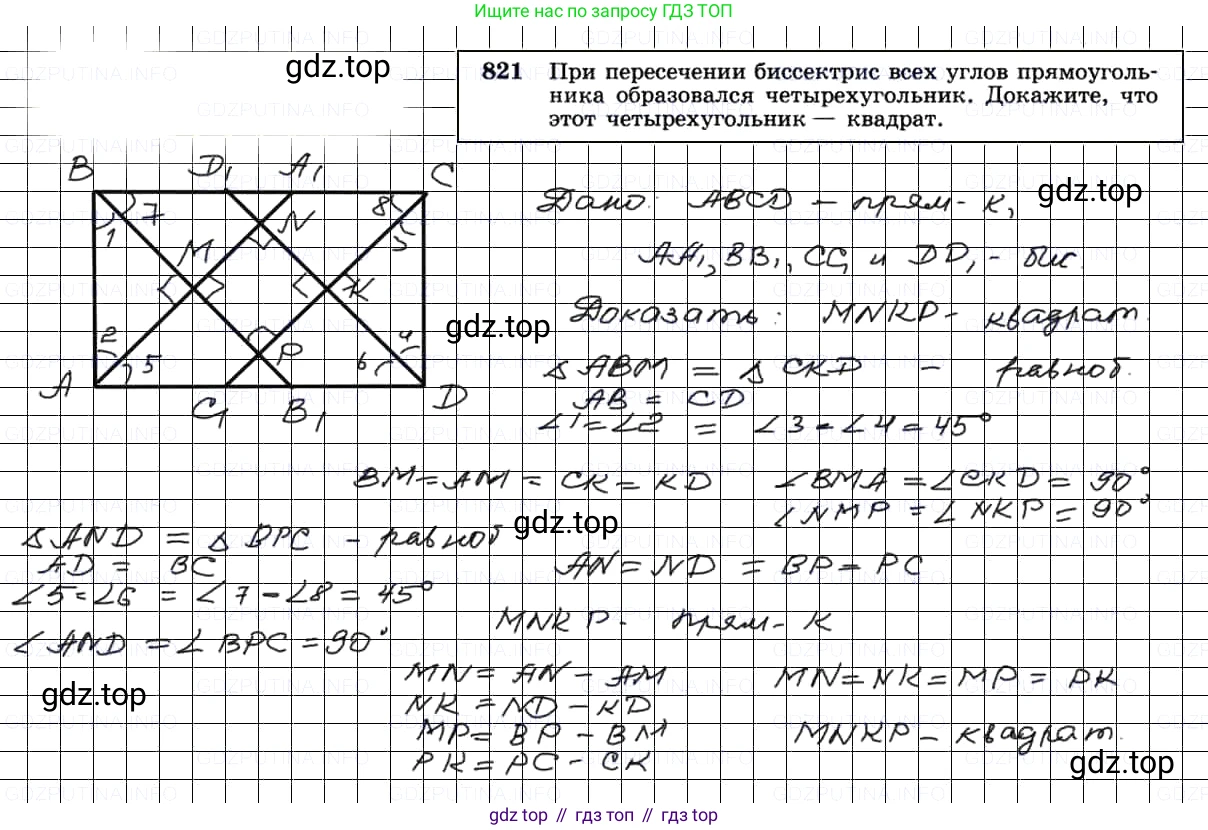 Ищите нас по запросу ГДЗ ТОП
gdz.top
821 При пересечении биссектрис всех углов прямоуголь-
ника образовался четырехугольник. Докажите, что
этот четырехугольник — квадрат.
B D₁ A₁ C
7 8
1 N 3
M
K
2 P 4
5 6
A C₁ B₁ D
Дано: ABCD - прям-к,
gdz.top
AA₁, BB₁, CC₁ и DD₁ - бис.
Доказать: MNKP - квадрат.
gdz.top
△ABM = △CKD - равноб.
AB = CD
∠1=∠2 = ∠3=∠4=45°
BM=AM = CK=KD ∠BMA=∠CKD=90°
∠NMP=∠NKP=90°
gdz.top
△AND = △BPC - равноб
AD = BC AN=ND = BP=PC
∠5=∠6 = ∠7=∠8= 45°
MNKP - прям-к
∠AND =∠BPC=90°
MN= AN - AM MN=NK=MP= PK
gdz.top
NK =ND - KD
MP= BP - BM MNKP - квадрат.
PK= PC - CK
gdz.top
gdz top // гдз топ // gdz top